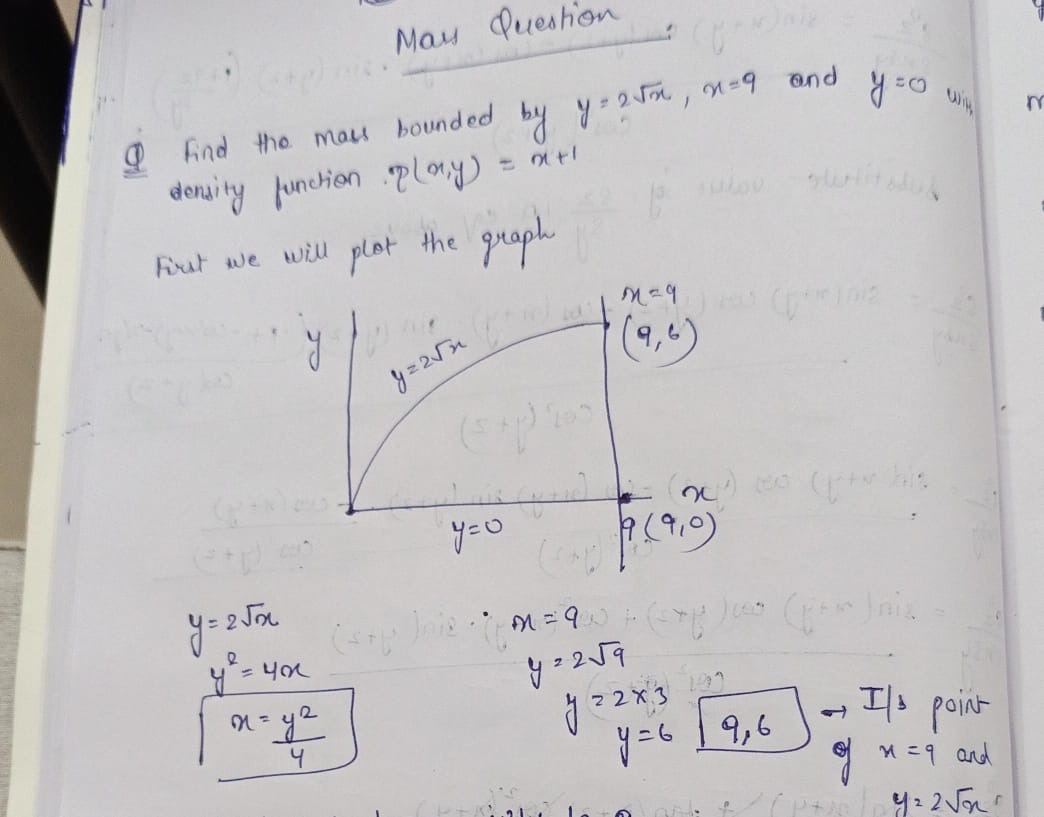 Mass Question
Q Find the mass bounded by y = 2√x, x=9 and y=0 with
density function ρ(x,y) = x+1
First we will plot the graph
x=9
y
(9,6)
y=2√x
x
y=0
9 (9,0)
y=2√x
x=9
y²=4x
y=2√9
x = y²/4
y=2×3
y=6
9,6
→ I/s point
of x=9 and
y=2√x